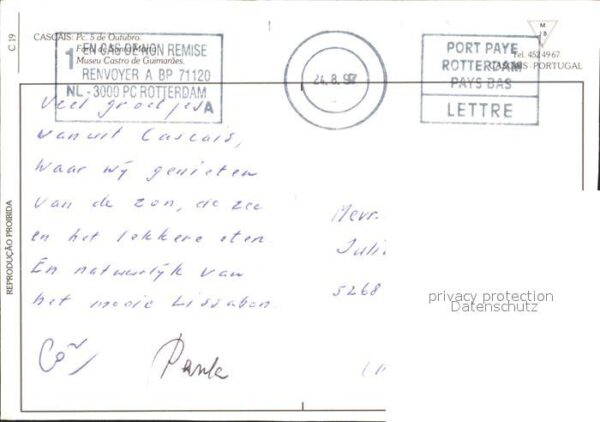 C 19
CASCAIS: Pc. 5 de Outubro.
Museu Castro de Guimarães.
M
B
Tel. 4524967
CASCAIS - PORTUGAL
1
EN CAS DE NON REMISE
RENVOYER A BP 71120
NL - 3000 PC ROTTERDAM
A
24.8.97
PORT PAYE
ROTTERDAM
PAYS BAS
LETTRE
Veel groetjes
vanuit Cascais,
waar wij genieten
van de zon, de zee
en het lekkere eten.
En natuurlijk van
het mooie Lissabon.
Paula
Mevr.
5268
REPRODUÇÃO PROIBIDA
privacy protection
Datenschutz